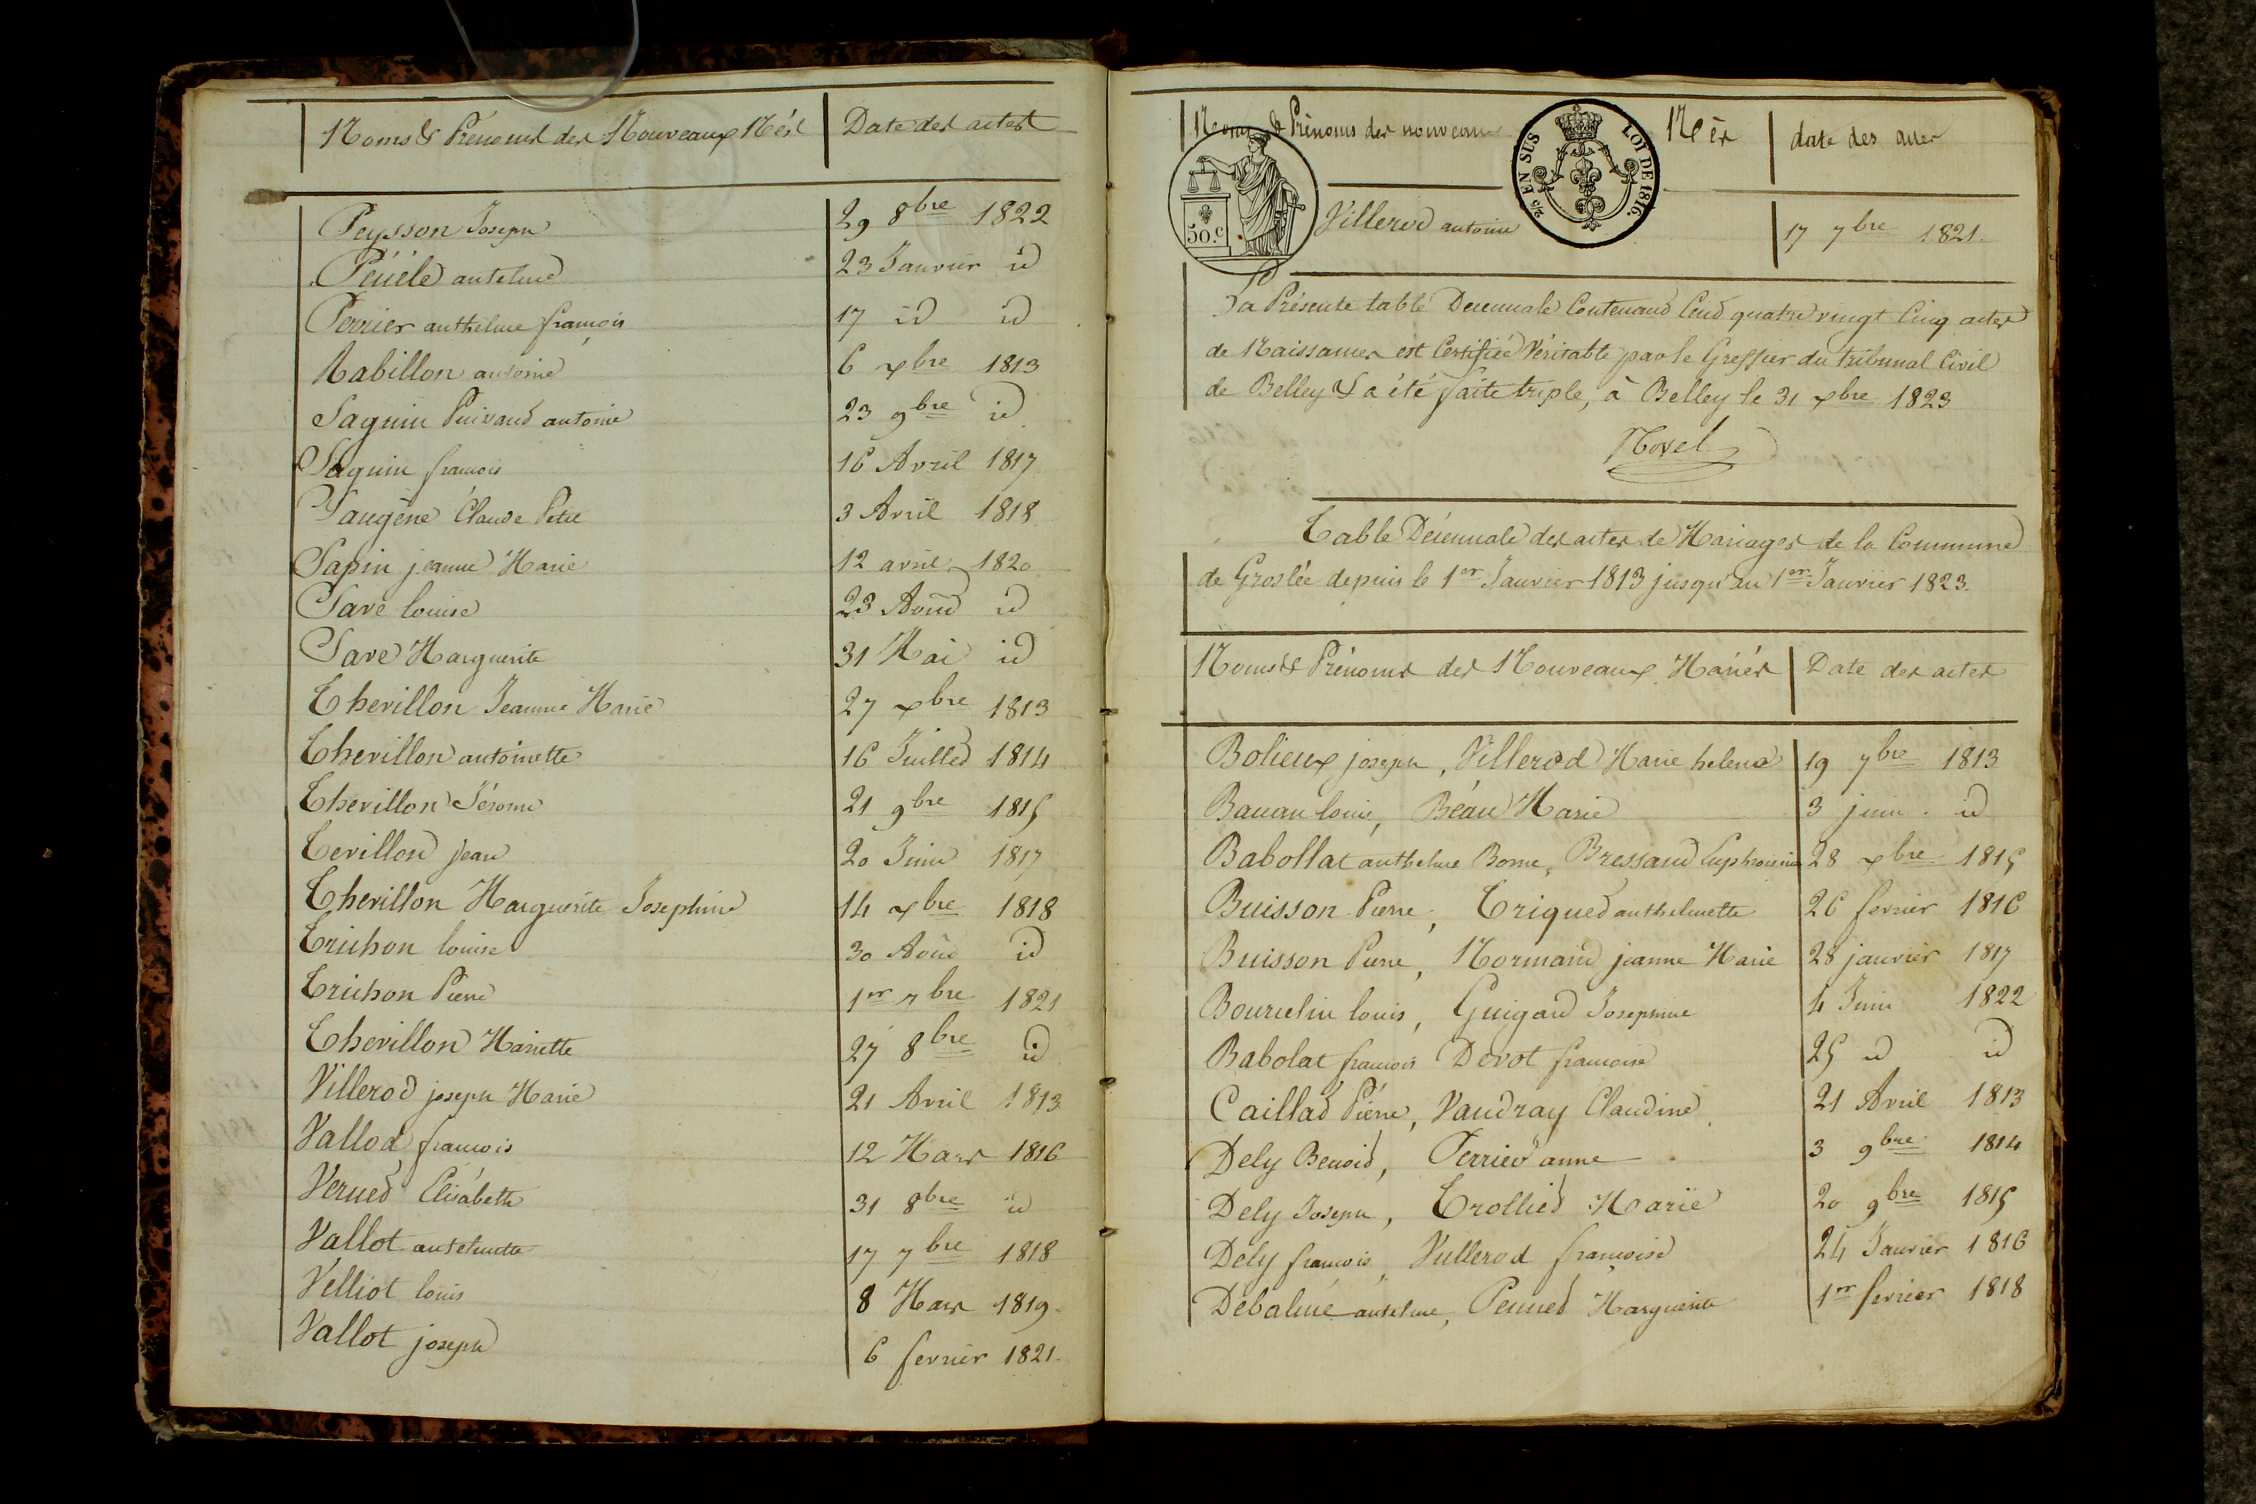 Noms & Prénoms des Nouveaux Nés Date des actes
Peysson Joseph 29 8bre 1822
Péüéle antelme 23 Janvier id
Perrier anthelme françois 17 id id
Rabillon antoine 6 xbre 1813
Saguin Puivand antoine 23 9bre id
Saguin francois 16 Avril 1817
Saugéne Claude 3 Avril 1818
Sapin jeanne Marie 12 avril 1820
Save louise 23 Aoûd id
Save Marguerite 31 Mai id
Thevillon Jeanne Marie 27 xbre 1813
Thevillon antoinette 16 Juilled 1814
Thevillon Jérome 21 9bre 1815
Tevillon jean 20 Juin 1817
Thevillon Marguerite Josephine 14 xbre 1818
Trichon louise 30 Aoûd id
Trichon Pierre 1er 7bre 1821
Thevillon Mariette 27 8bre id
Villerod joseph Marie 21 Avril 1813
Vallod francois 12 Mars 1816
Verued Elisabeth 31 8bre id
Vallot antelmette 17 7bre 1818
Velliot louis 8 Mars 1819
Vallot joseph 6 fevrier 1821
Noms & Prénoms des nouveaux Nés date des actes
2/5 EN SUS LOI DE 1816.
50.c
Villerod antoine 17 7bre 1821
La Présente table Decennale Contenand Cend quatre vingt Cinq actes
de Naissances est Certifiée Véritable par le Greffier du tribunal Civil
de Belley & a été faite triple, à Belley le 31 xbre 1823
Novel
Table Décennale des actes de Mariages de la Commune
de Groslée depuis le 1er Janvier 1813 jusqu'au 1er Janvier 1823.
Noms & Prénoms des Nouveaux Mariés Date des actes
Bolieux joseph, Villerod Marie helene 19 7bre 1813
Bauan louis, Béau Marie 3 juin id
Babollat anthelme Bome, Bressand Euphrosine 28 xbre 1815
Buisson Pierre, Triqued anthelmette 26 fevrier 1816
Buisson Pierre, Normand jeanne Marie 28 janvier 1817
Bourcelin louis, Guigard Josephine 4 Juin 1822
Babolat francois Dovot francoise 25 id id
Caillad Piérre, Vaudray Claudine 21 Avril 1813
Dely Benoid, Perrier anne 3 9bre 1814
Dely Joseph, Trollied Marie 20 9bre 1815
Dely francois, Vullerod françoise 24 Janvier 1816
Débalmé antelme, Penned Marguerite 1er fevrier 1818